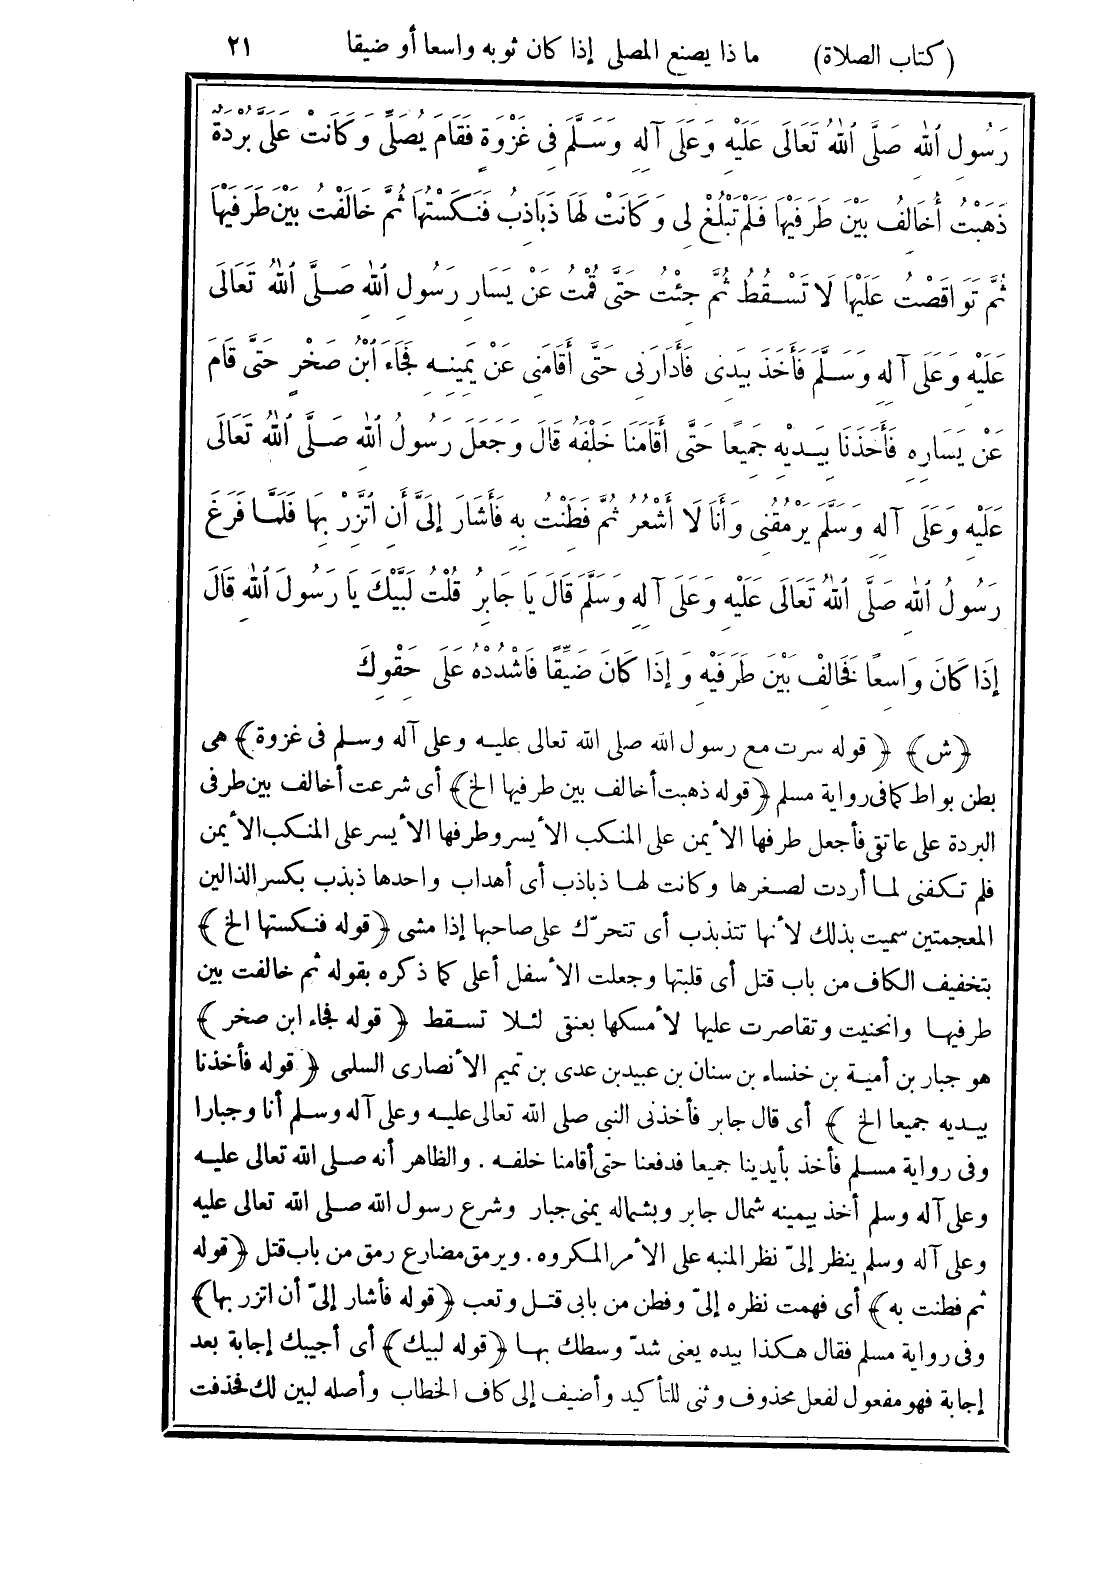 (كتاب الصلاة) ما ذا يصنع المصلى إذا كان ثوبه واسعا أو ضيقا ٢١
رَسُولِ ٱللهِ صَلَّى ٱللهُ تَعَالَى عَلَيْهِ وَعَلَى آلِهِ وَسَلَّمَ فِى غَزْوَةٍ فَقَامَ يُصَلِّى وَكَانَتْ عَلَىَّ بُرْدَةٌ
ذَهَبْتُ أُخَالِفُ بَيْنَ طَرَفَيْهَا فَلَمْ تَبْلُغْ لِى وَكَانَتْ لَهَا ذَبَاذِبُ فَنَكَسْتُهَا ثُمَّ خَالَفْتُ بَيْنَ طَرَفَيْهَا
ثُمَّ تَوَاقَصْتُ عَلَيْهَا لَا تَسْقُطُ ثُمَّ جِئْتُ حَتَّى قُمْتُ عَنْ يَسَارِ رَسُولِ ٱللهِ صَلَّى ٱللهُ تَعَالَى
عَلَيْهِ وَعَلَى آلِهِ وَسَلَّمَ فَأَخَذَ بِيَدِى فَأَدَارَنِى حَتَّى أَقَامَنِى عَنْ يَمِينِهِ فَجَاءَ ٱبْنُ صَخْرٍ حَتَّى قَامَ
عَنْ يَسَارِهِ فَأَخَذَنَا بِيَدَيْهِ جَمِيعًا حَتَّى أَقَامَنَا خَلْفَهُ قَالَ وَجَعَلَ رَسُولُ ٱللهِ صَلَّى ٱللهُ تَعَالَى
عَلَيْهِ وَعَلَى آلِهِ وَسَلَّمَ يَرْمُقُنِى وَأَنَا لَا أَشْعُرُ ثُمَّ فَطِنْتُ بِهِ فَأَشَارَ إِلَىَّ أَنِ ٱتَّزِرْ بِهَا فَلَمَّا فَرَغَ
رَسُولُ ٱللهِ صَلَّى ٱللهُ تَعَالَى عَلَيْهِ وَعَلَى آلِهِ وَسَلَّمَ قَالَ يَا جَابِرُ قُلْتُ لَبَّيْكَ يَا رَسُولَ ٱللهِ قَالَ
إِذَا كَانَ وَاسِعًا فَخَالِفْ بَيْنَ طَرَفَيْهِ وَإِذَا كَانَ ضَيِّقًا فَاشْدُدْهُ عَلَى حَقْوِكَ
﴿ش﴾ ﴿قوله سرت مع رسول الله صلى الله تعالى عليه وعلى آله وسلم فى غزوة﴾ هى
بطن بواط كما فى رواية مسلم ﴿قوله ذهبت أخالف بين طرفيها الخ﴾ أى شرعت أخالف بين طرفى
البردة على عاتقى فأجعل طرفها الأيمن على المنكب الأيسر وطرفها الأيسر على المنكب الأيمن
فلم تكفنى لما أردت لصغرها وكانت لها ذباذب أى أهداب واحدها ذبذب بكسر الذالين
المعجمتين سميت بذلك لأنها تتذبذب أى تتحرّك على صاحبها إذا مشى ﴿قوله فنكستها الخ﴾
بتخفيف الكاف من باب قتل أى قلبتها وجعلت الأسفل أعلى كما ذكره بقوله ثم خالفت بين
طرفيها وانحنيت وتقاصرت عليها لأمسكها بعنقى لئلا تسقط ﴿قوله فجاء ابن صخر﴾
هو جبار بن أمية بن خنساء بن سنان بن عبيد بن عدى بن تميم الأنصارى السلمى ﴿قوله فأخذنا
بيديه جميعا الخ﴾ أى قال جابر فأخذنى النبي صلى الله تعالى عليه وعلى آله وسلم أنا وجبارا
وفى رواية مسلم فأخذ بأيدينا جميعا فدفعنا حتى أقامنا خلفه . والظاهر أنه صلى الله تعالى عليه
وعلى آله وسلم أخذ بيمينه شمال جابر وبشماله يمنى جبار وشرع رسول الله صلى الله تعالى عليه
وعلى آله وسلم ينظر إلىّ نظر المنبه على الأمر المكروه . ويرمق مضارع رمق من باب قتل ﴿قوله
ثم فطنت به﴾ أى فهمت نظره إلىّ وفطن من بابى قتل وتعب ﴿قوله فأشار إلىّ أن اتزر بها﴾
وفى رواية مسلم فقال هكذا بيده يعنى شدّ وسطك بها ﴿قوله لبيك﴾ أى أجيبك إجابة بعد
إجابة فهو مفعول لفعل محذوف وثنى للتأكيد وأضيف إلى كاف الخطاب وأصله لبين لك فحذفت